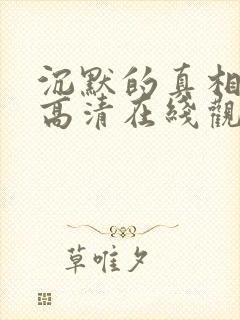 沉默的真相
高清在綫觀
草唯夕